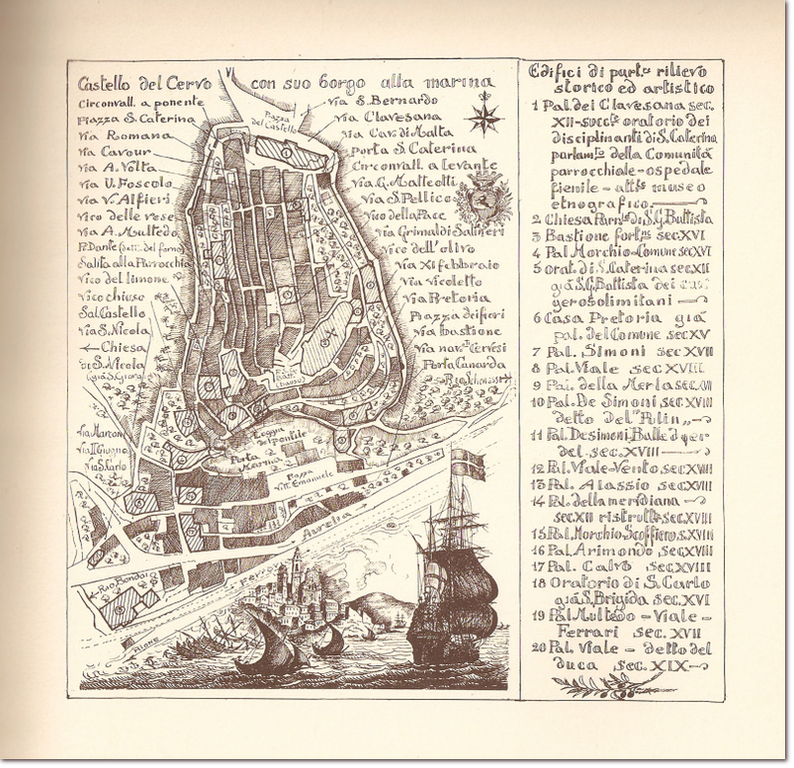 Castello del Cervo con suo borgo alla marina
Circonvall. a ponente
Piazza S. Caterina
Via Romana
Via Cavour
Via A. Volta
Via U. Foscolo
Via V. Alfieri
Vico delle rose
Via A. Multedo
P. Dante
Salita alla Parrocchia
Vico del limone
Vico chiuso
Sal. Castello
Via S. Nicola
← Chiesa
di S. Nicola
(già S. Giorgio)
Via Marconi
Via II Giugno
Via S. Carlo
Piazza
del Castello
Via S. Bernardo
Via Clavesana
Via Cav. di Malta
porta S. Caterina
Circonvall. a levante
Via G. Matteotti
Via S. Pellico
Vico della Pace
Via Grimaldi Salineri
Vico dell'olivo
Via XI febbraio
Via Nicoletto
Via Pretoria
Piazza dei fiori
Via bastione
Porta Canarda
Loggia
del pontile
Porta
Marina
Piazza
Vitt. Emanuele
Aurelia →
Ferrov
← Rio Bondai
Edifici di part.re rilievo
storico ed artistico
1 Pal. dei Clavesana sec.
XII - oratorio dei
disciplinanti di S. Caterina
parlam.to della Comunità
parrocchiale - ospedale
fienile - museo
etnografico.
2 Chiesa Parr.le di S. G. Battista
3 Bastione sec. XVI
4 Pal. Morchio - Comune sec XVI
5 Orat. di S. Caterina sec. XII
già S. G. Battista dei
gerosolimitani
6 Casa Pretoria già
pal. del Comune sec XV
7 Pal. Simoni sec XVII
8 Pal. Viale sec XVIII
9 Pal. della Merla sec. XVI
10 Pal. De Simoni sec. XVIII
detto del "Pulin"
11 Pal. Desimoni, Balle dyer
del sec. XVIII
12 Pal. Viale-Vento sec. XVIII
13 Pal. Alassio sec. XVIII
14 Pal. della meridiana
sec. XII ristrutt. sec. XVIII
15 Pal. Morchio, Scoffiero s. XVIII
16 Pal. Arimondo sec XVIII
17 Pal. Calvo sec. XVIII
18 Oratorio di S. Carlo
già S. Brigida sec. XVI
19 Pal. Multedo - Viale -
Ferrari sec. XVII
20 Pal. Viale - detto del
duca sec. XIX